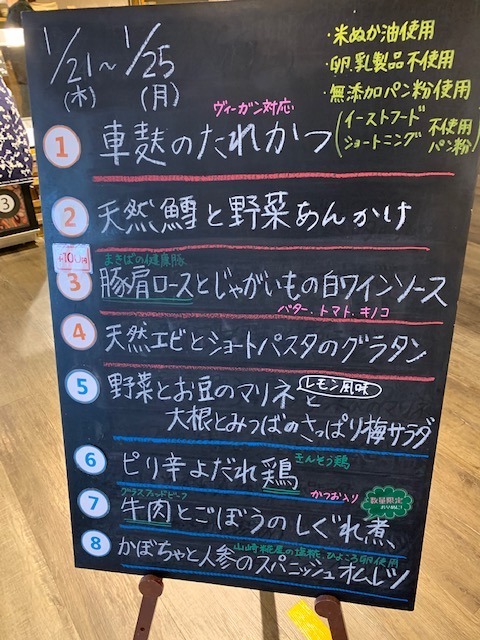 1/21~1/25
(木) (月)
・米ぬか油使用
・卵、乳製品不使用
・無添加パン粉使用
(イーストフード
ショートニング 不使用
パン粉)
ヴィーガン対応
1 車麩のたれかつ
2 天然鱈と野菜あんかけ
+100円
まきばの健康豚
3 豚肩ロースとじゃがいもの白ワインソース
バター・トマト・キノコ
4 天然エビとショートパスタのグラタン
5 野菜とお豆のマリネ レモン風味 と
大根とみつばのさっぱり梅サラダ
6 ピリ辛よだれ鶏 きんそう鶏
グラスフェッドビーフ かつお入り 数量限定
7 牛肉とごぼうのしぐれ煮
山崎糀屋の塩糀、ひよころ卵使用
8 かぼちゃと人参のスパニッシュオムレツ
3